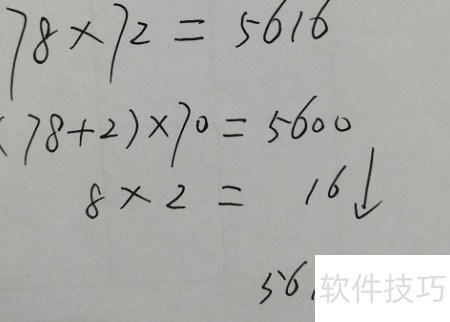 78×72=5616
(78+2)×70=5600
8×2= 16↓
56
软件技巧